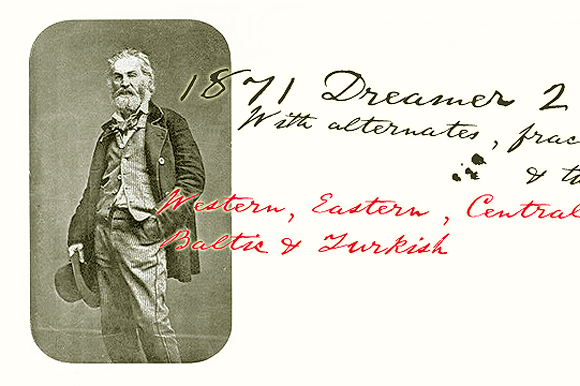 1871 Dreamer 2
With alternates, frac
& t
Western, Eastern, Central
Baltic & Turkish